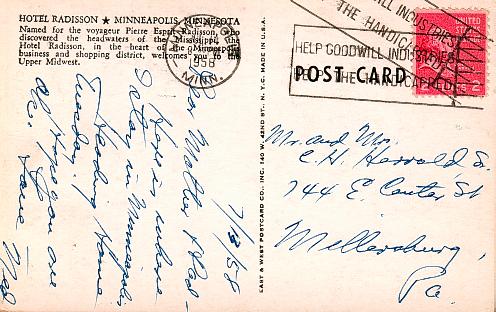 HOTEL RADISSON ★ MINNEAPOLIS, MINNESOTA
Named for the voyageur Pierre Esprit Radisson, who
discovered the headwaters of the Mississippi, the
Hotel Radisson, in the heart of the Minneapolis
business and shopping district, welcomes you to the
Upper Midwest.
1958
MINN.
HELP GOODWILL INDUSTRIES
THE HANDICAPPED
HELP GOODWILL INDUSTRIES
THE HANDICAPPED
UNITED STATES
2¢
POST CARD
EAST & WEST POSTCARD CO., INC. 140 W. 42ND ST., N. Y. C. MADE IN U.S.A.
7/13/58
Dear Mother & Dad -
Here is where
I stay in Minneapolis
Heading home
Tuesday.
Hope you are
Love Ned
Mr. and Mrs.
C. H. Harrold Sr.
744 E. Center St
Millersburg,
Pa.